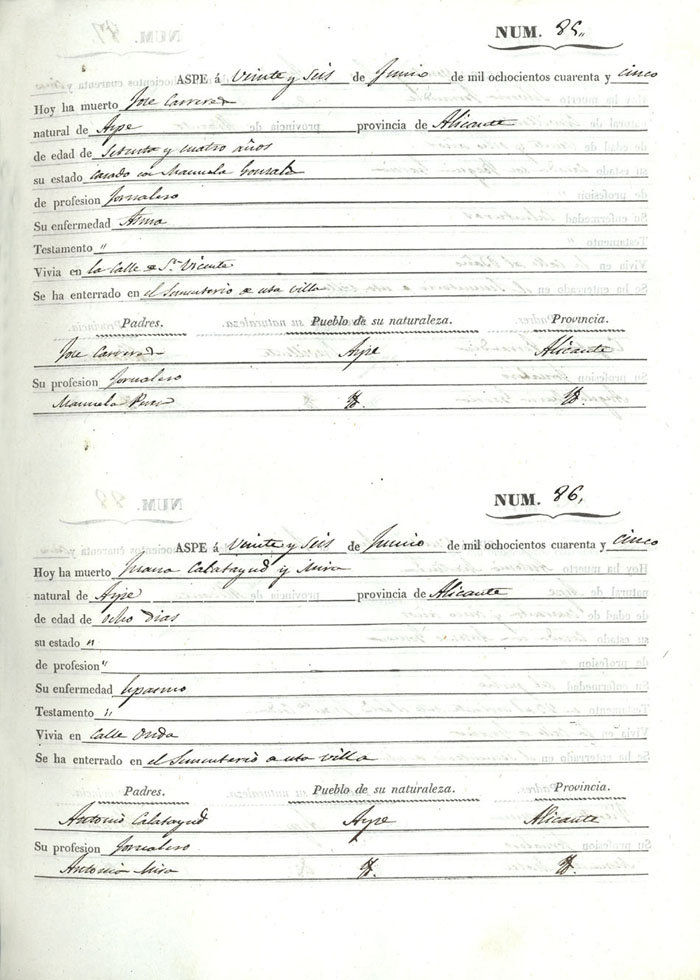 NUM. 85.
ASPE á Veinte y Seis de Junio de mil ochocientos cuarenta y cinco
Hoy ha muerto Jose Carreres
natural de Aspe provincia de Alicante
de edad de Setenta y cuatro años
su estado casado con Manuela Gonzalez
de profesion Jornalero
Su enfermedad Asma
Testamento "
Vivia en la Calle de Sn. Vicente
Se ha enterrado en el Sementerio de esta villa
Padres. Pueblo de su naturaleza. Provincia.
Jose Carreres Aspe Alicante
Su profesion Jornalero
Manuela Perez
NUM. 86.
ASPE á Veinte y Seis de Junio de mil ochocientos cuarenta y cinco
Hoy ha muerto Calatayud y Mira
natural de Aspe provincia de Alicante
de edad de ocho dias
su estado "
de profesion "
Su enfermedad Espasmo
Testamento "
Vivia en Calle Onda
Se ha enterrado en el Sementerio de esta villa
Padres. Pueblo de su naturaleza. Provincia.
Antonio Calatayud Aspe Alicante
Su profesion Jornalero
Antonia Mira